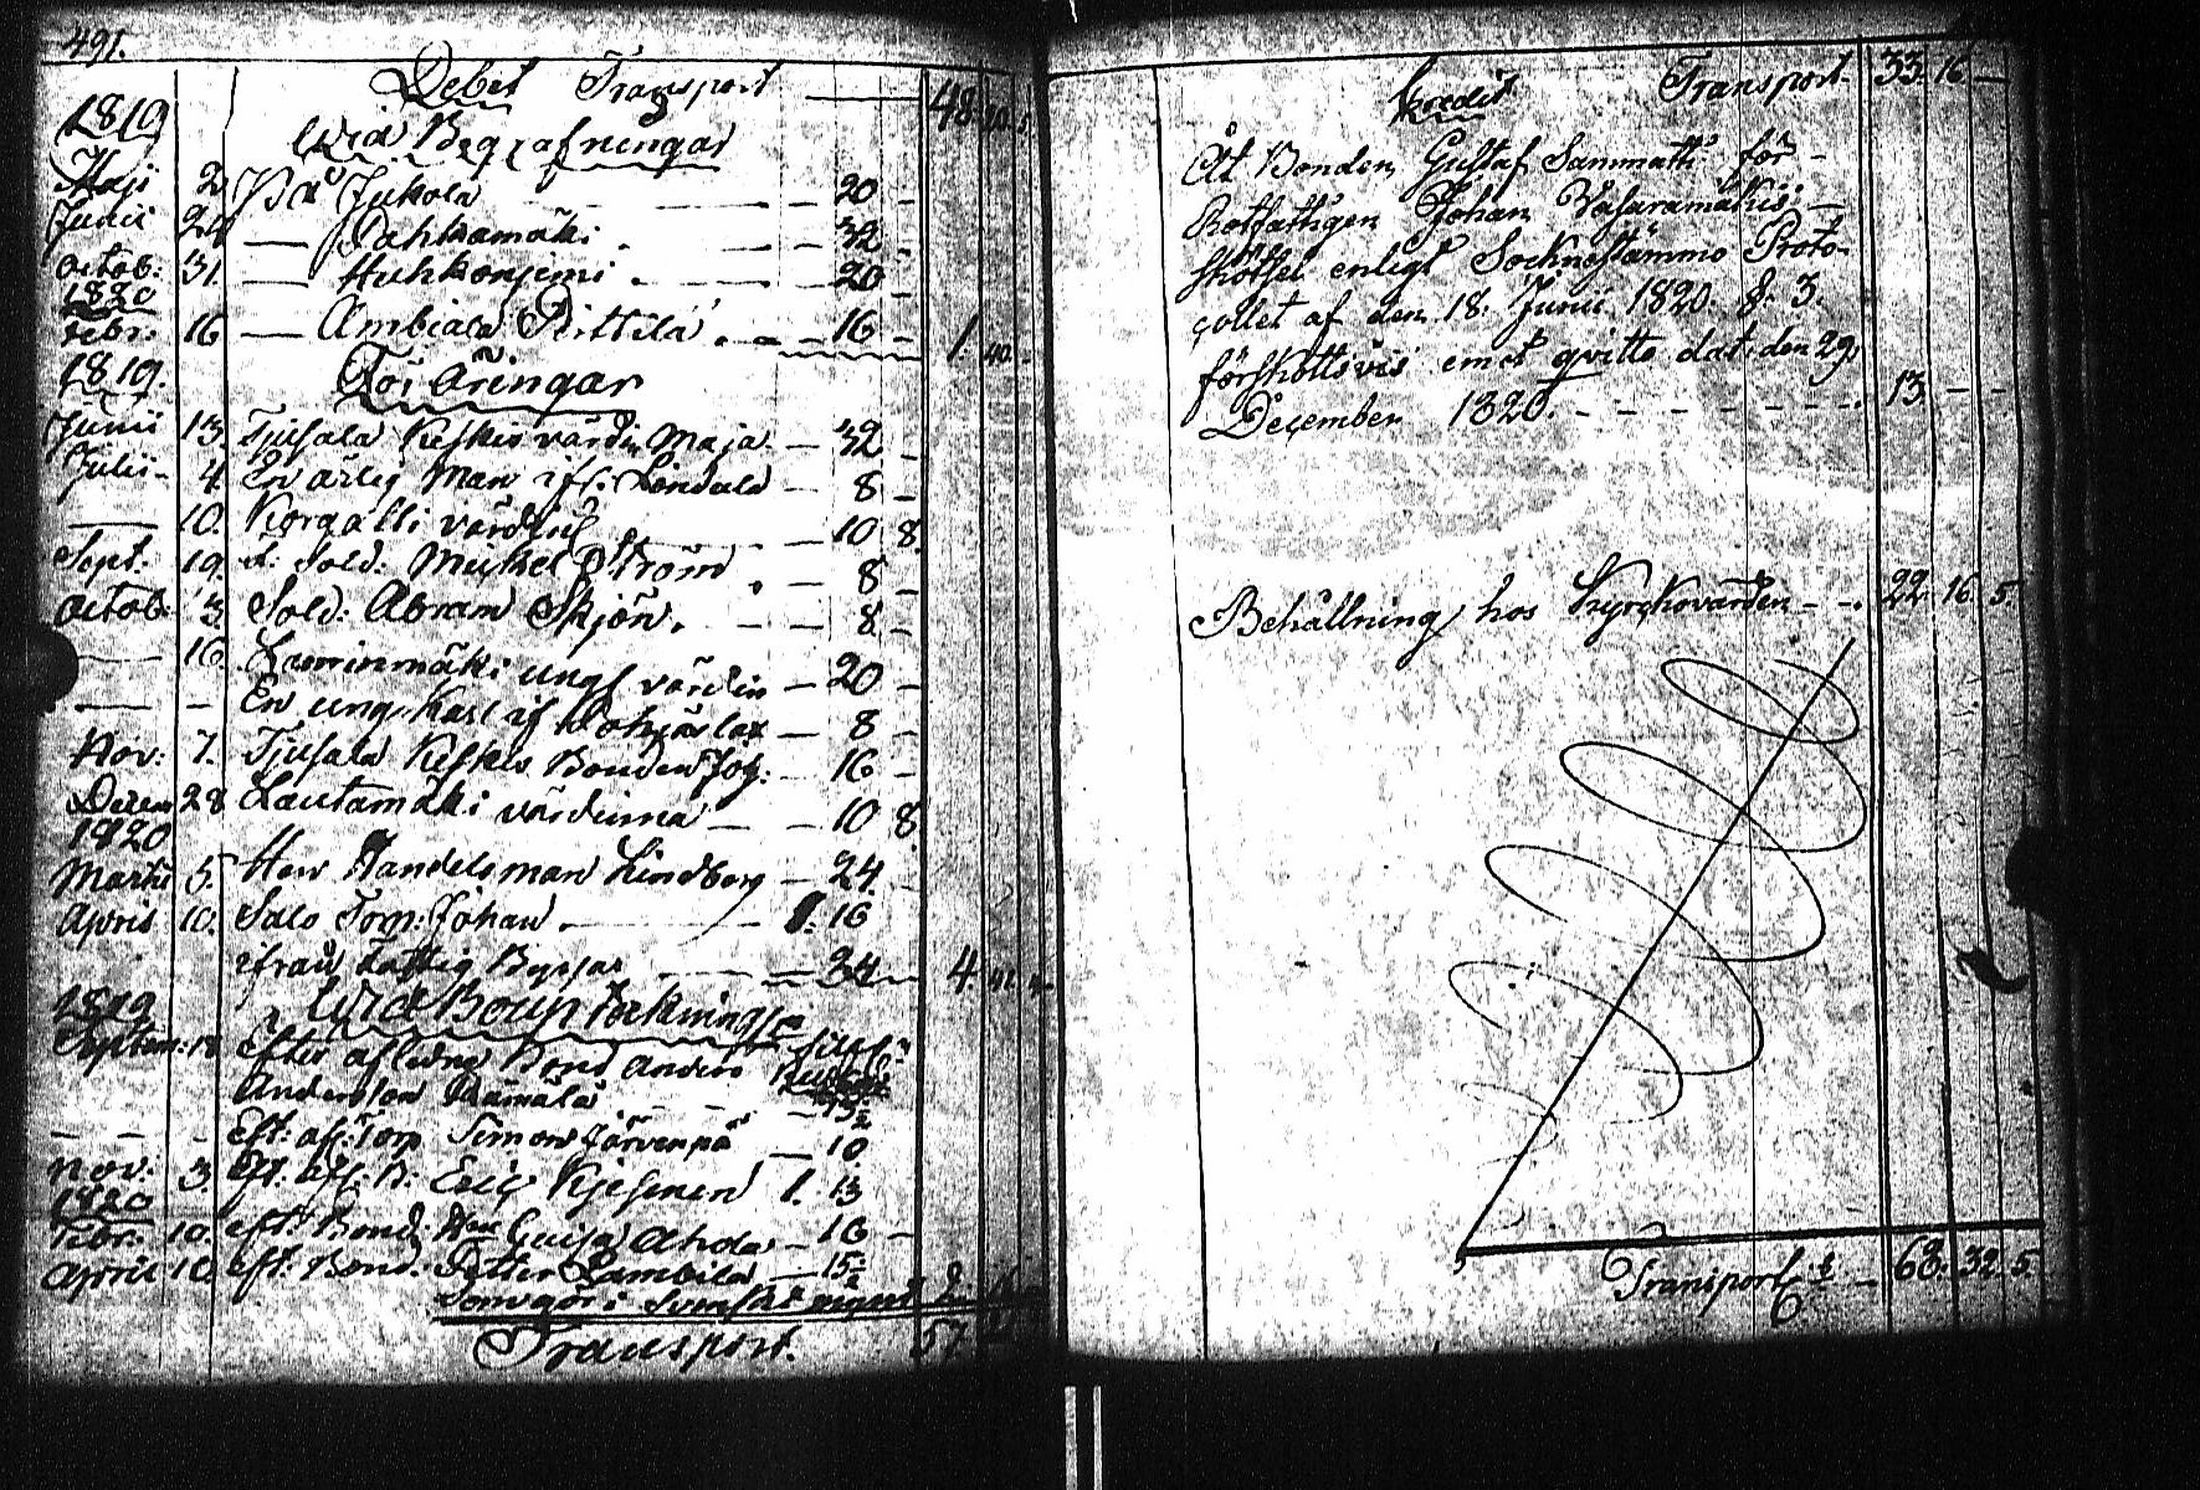 491.
Debet Transport — 48. 20. 5.
1819
Wid Begrafningar
Maji 2 På Jukola — 20 –
Junii 24 — Pahkamäki — 32 –
Octob: 31. — Huhkonjemi — 20 –
1820
Febr: 16 — Ambiala Pirttilä — 16 – 1. 40. –
1819.
För Äringar
Junii 13. Tjusala Keskis värdin Maja — 32 –
Julii – 4. En ärlig Man ifr: Londala — 8 –
— 10. Korgatti — 10 8.
Sept: 19. d: Sold: Mickel Ström — 8 –
Octob: 3. Sold: Abram Skjön. — 8. –
— 16. unga värdin — 20 –
— – En ung Karl if — 8 –
Nov: 7. Tjusala Keskis Bonden Joh: — 16 –
Decem 28 Lautamäki värdinna — 10 8.
1820
Martii 5. Herr Handelsman Lindborg — 24. –
April 10. Salo Torp: Johan — 1. 16
ifrån Fattig Byssan — 34 — 4.
1819
Wid Bouptekningar
Septem: 18 Efter aflidne Bond Anders
Andersson Rämälä —
— – – Eft: afl: Torp Simon Järvenpä — 10
Nov: 3. Eft: afl: B: Eric 1. 13
1820
Febr: 10. eft: Bond: Ahola — 16 –
April 10. eft: Bond: Petter Lambila — 15
som gör i Svenska 2.
Transport. 57
Kredit Transport – 33. 16 —
Åt Bonden Gustaf Sammatti för –
Rotfattigen Johan Vasaramäkis –
skötsel enligt Socknestämmo Proto-
collet af den 18. Junii 1820. §. 3.
förskottsvis emot qvitto dat: den 29.
December 1820. – – – – – – – 13. – –
Behållning hos Kyrckovärden – –. 22. 16. 5.
Transport — 68. 32. 5.